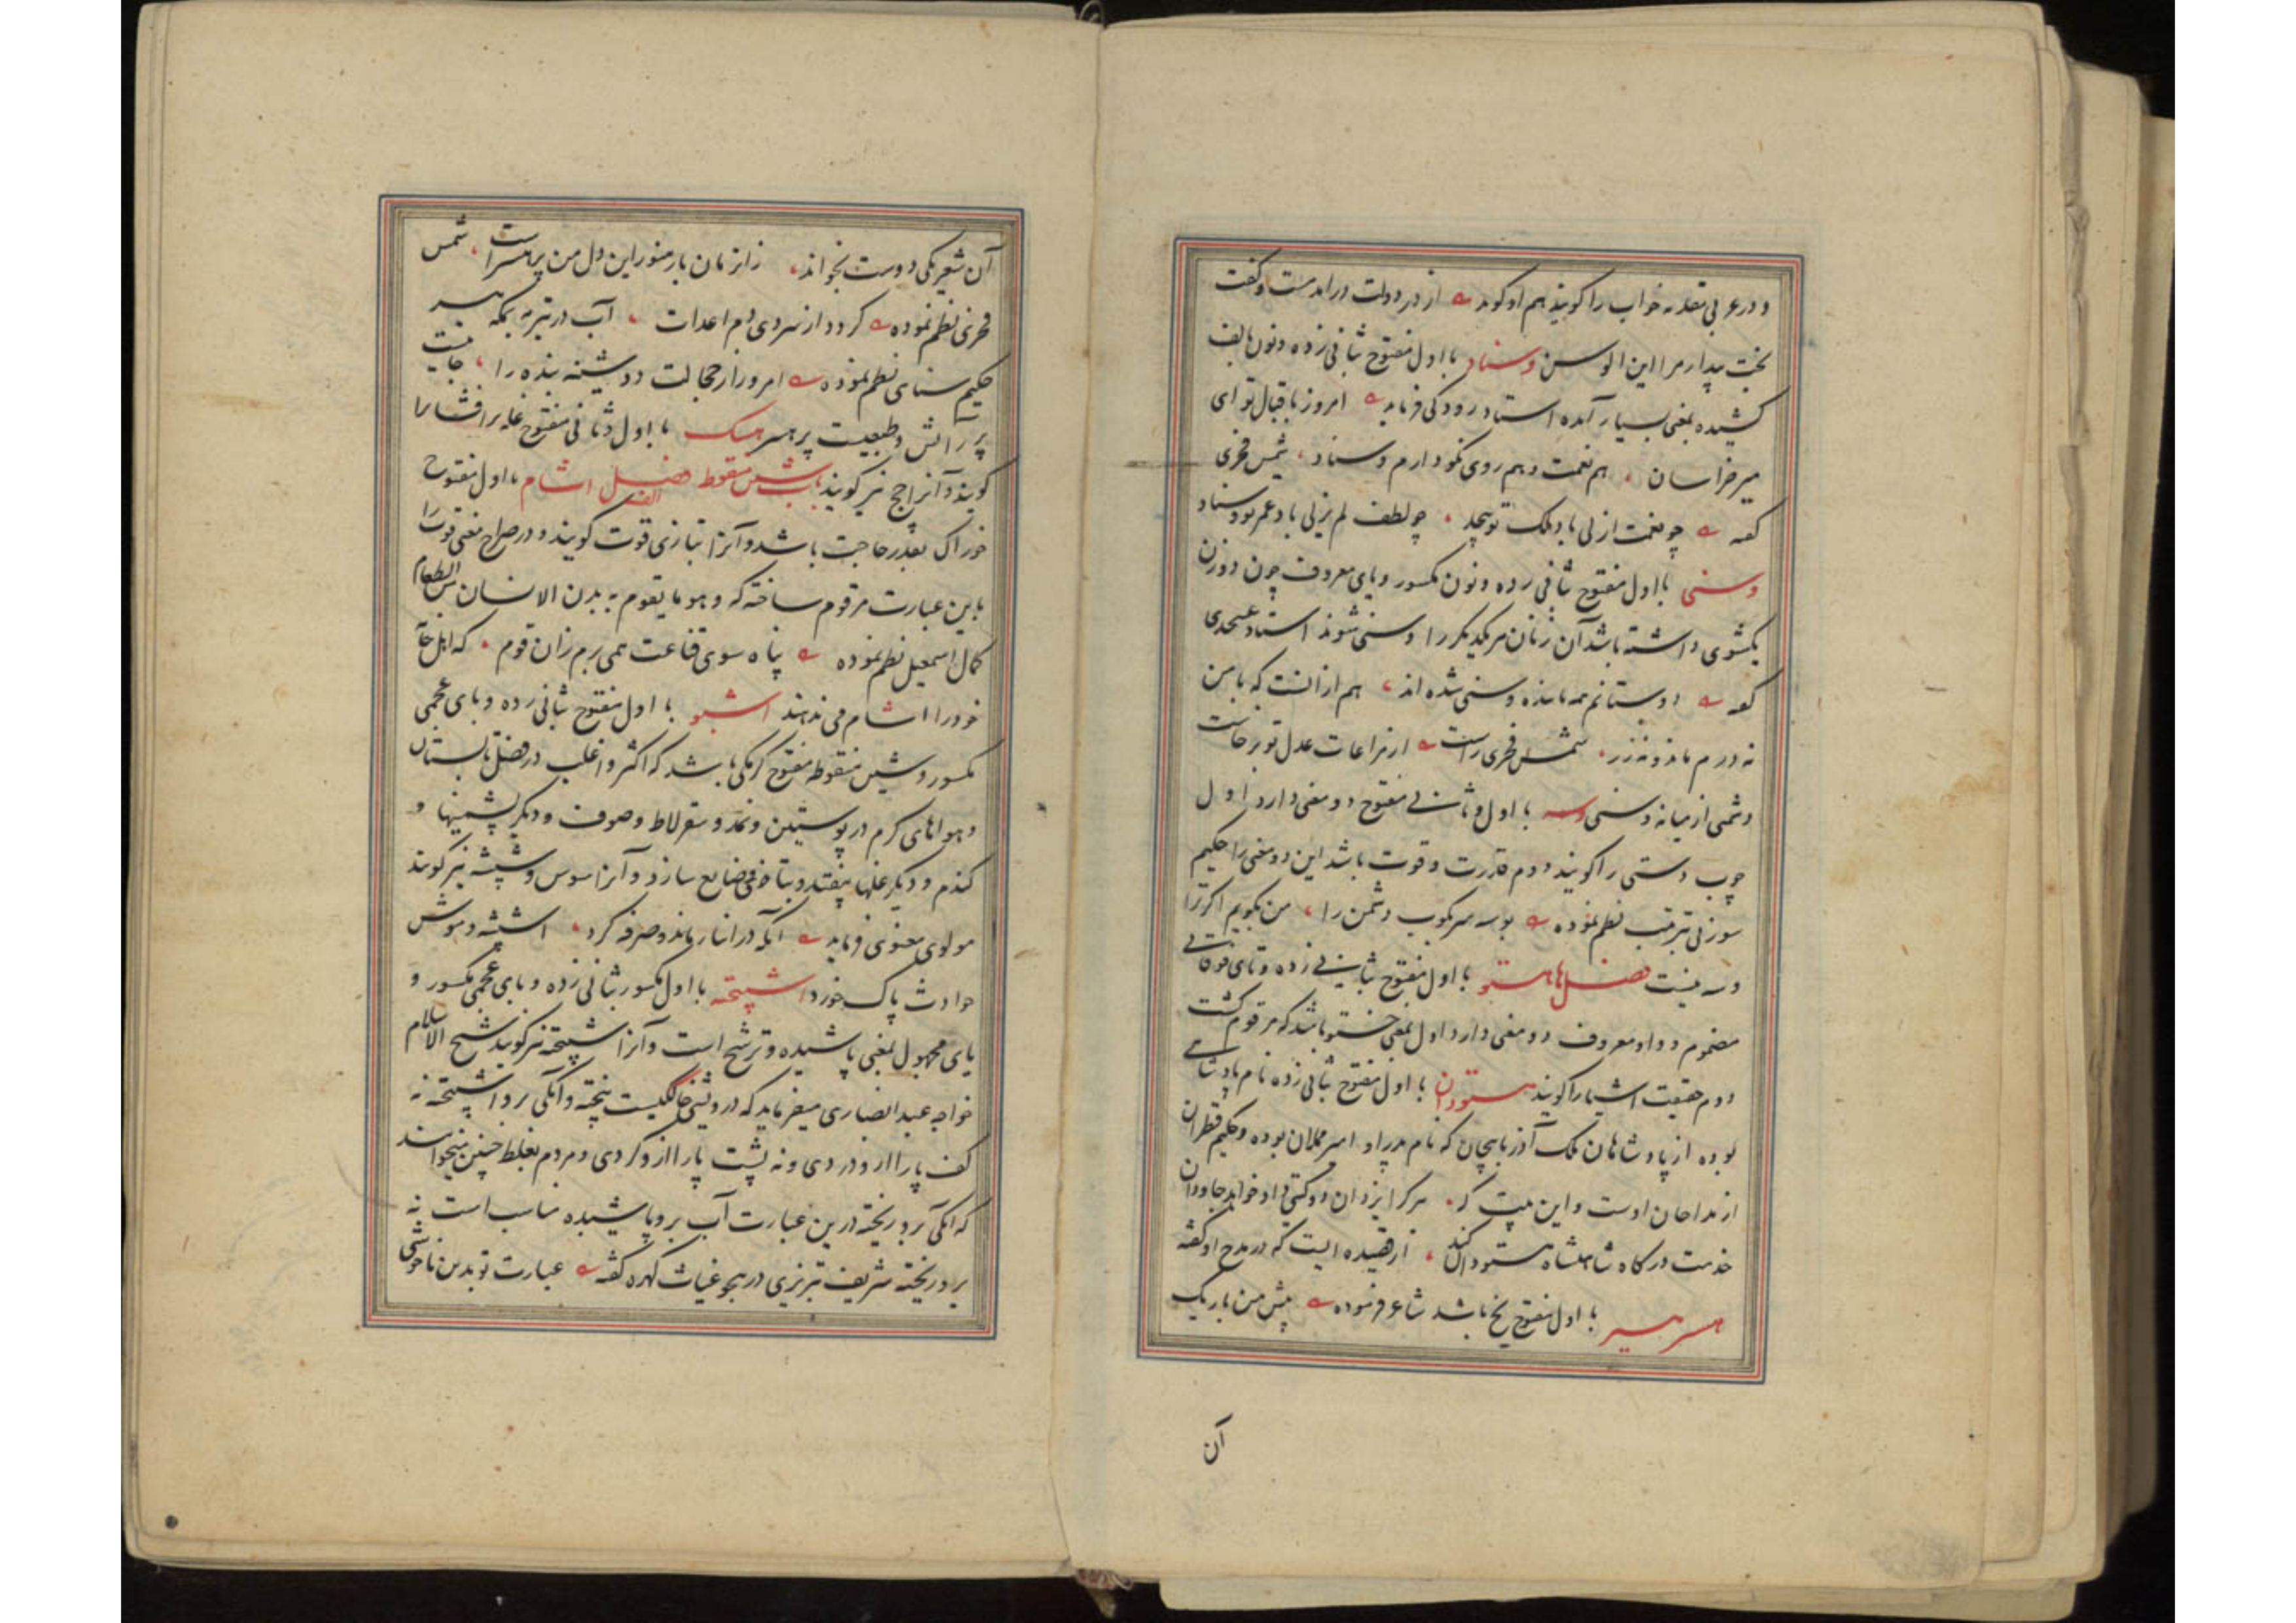 و در عربی مقدمه خواب را گویند هم او گوید از در دولت درآمد مست و گفت
بخت بیدار مرا این الوسن وسناد با اول مفتوح بثانی زده و نون بالف
کشیده بمعنی بسیار آمده استاد رودکی فرماید امروز باقبال تو ای
میر خراسان هم نعمت و هم روی نکو دارم وسناد شمس فخری
گفته چو نعمت ازلی باد ملک تو بیحد چو لطف لم یزلی باد عمر تو وسناد
وسنی با اول مفتوح بثانی زده و نون مکسور و یای معروف چون دو زن
یکشوی داشته باشد آن زنان مر یکدیگر را وسنی شوند استاد عسجدی
گفته دوستانم همه مانده وسنی شده اند هم از انست که با من
نه درم ماند و نه زر شمس فخری راست از مراعات عدل تو برخاست
دشمنی از میانه وسنی وسه با اول و ثانی مفتوح دو معنی دارد اول
چوب دستی را گویند دوم قدرت و قوت باشد این دو معنی را حکیم
سوزنی بترتیب نظم نموده بوسه سر بکوب دشمن را من بگویم اگر ترا
وسه نیست فصل ها هستو با اول مفتوح بثانی زده و تای فوقانی
مضموم و واو معروف دو معنی دارد اول بمعنی خستو باشد که مرقوم گشت
دوم حقیقت اشیا را گویند هستودان با اول مفتوح بثانی زده نام پادشاهی
بوده از پادشاهان ملک آذربایجان که نام پدر او امیر مملان بوده و حکیم قطران
از مداحان اوست و این بیت که هر که را یزدان دو گیتی داد خواهد جاودان
خدمت درگاه شاهنشاه هستودان کند از قصیده ایست که در مدح او گفته
هسر هسیر با اول مفتوح یخ باشد شاعر فرموده پیش من باریک
آن
آن شعر یکی دوست بخواند زانزمان باز هنوز این دل من پر هسراست شمس
فخری نظم نموده گردد از سردی دم اعدات آب در تیر مه بمکه هسیر
حکیم سنائی نظم نموده امروز از خجالت دوشینه بنده را جانیست
پر آتش و طبعیست پر هسر هسک با اول و ثانی مفتوح غله برافشان را
گویند و آنرا چچ نیز گویند باب شین منقوط فصل الف اشام با اول مفتوح
خوراک بقدر حاجت باشد و آنرا بتازی قوت گویند و در صراح معنی قوت را
باین عبارت مرقوم ساخته که و هو ما یقوم به بدن الانسان من الطعام
کمال اسمعیل نظم نموده پناه سوی قناعت همی برم زان قوم که اهل خانه
خود را اشام می ندهند اشپو با اول مفتوح بثانی زده و بای عجمی
مکسور و شین منقوطه مفتوح کرمکی باشد که اکثر و اغلب در فصل تابستان
و هواهای گرم در پوستین و نمد و سقرلاط و صوف و دیگر پشمینها و
گندم و دیگر غلها بیفتد و بتاخی ضایع سازد و آنرا سوس و شپشه نیز گویند
مولوی معنوی فرماید آنکه در انبار ماند و صرفه کرد اشپشه و موش
حوادث پاک خورد اشپیخته با اول مکسور بثانی زده و بای عجمی مکسور و
یای مجهول بمعنی پاشیده و ترشح است و آنرا شپیخته نیز گویند شیخ الاسلام
خواجه عبد انصاری میفرماید که درویشی خاکیست بیخته و آبکی برو اشپیخته نه
کف پا را از و دردی و نه پشت پا را از و گردی و مردم بغلط چنین میخوانند
که آبکی برو ریخته درین عبارت آب برو پاشیده مناسب است نه
برو ریخته شریف تبریزی در هجو غیاث کهره گفته عبارت تو بدین ناخوشی